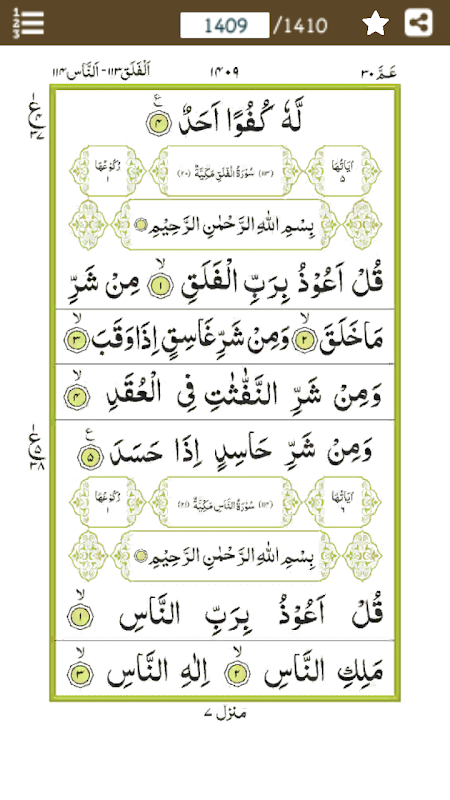 1
2
3
1409 /1410
عَمَّ ۳۰ ۱۴۰۹ اَلْفَلَق ۱۱۳ - اَلنَّاس ۱۱۴
لَّهٗ كُفُوًا اَحَدٌ ۴
ع
۴
۳۷
اٰيَاتُهَا ۵ (۱۱۳) سُوْرَةُ الْفَلَقِ مَكِّيَّةٌ (۲۰) رُكُوْعُهَا ۱
بِسْمِ اللهِ الرَّحْمٰنِ الرَّحِيْمِ
قُلْ اَعُوْذُ بِرَبِّ الْفَلَقِ ۱ۙ مِنْ شَرِّ
مَا خَلَقَ ۲ۙ وَمِنْ شَرِّ غَاسِقٍ اِذَا وَقَبَ ۳ۙ
وَمِنْ شَرِّ النَّفّٰثٰتِ فِى الْعُقَدِ ۴ۙ
وَمِنْ شَرِّ حَاسِدٍ اِذَا حَسَدَ ۵
ع
۵
۳۸
اٰيَاتُهَا ۶ (۱۱۴) سُوْرَةُ النَّاسِ مَكِّيَّةٌ (۲۱) رُكُوْعُهَا ۱
بِسْمِ اللهِ الرَّحْمٰنِ الرَّحِيْمِ
قُلْ اَعُوْذُ بِرَبِّ النَّاسِ ۱ۙ
مَلِكِ النَّاسِ ۲ۙ اِلٰهِ النَّاسِ ۳ۙ
منزل ۷